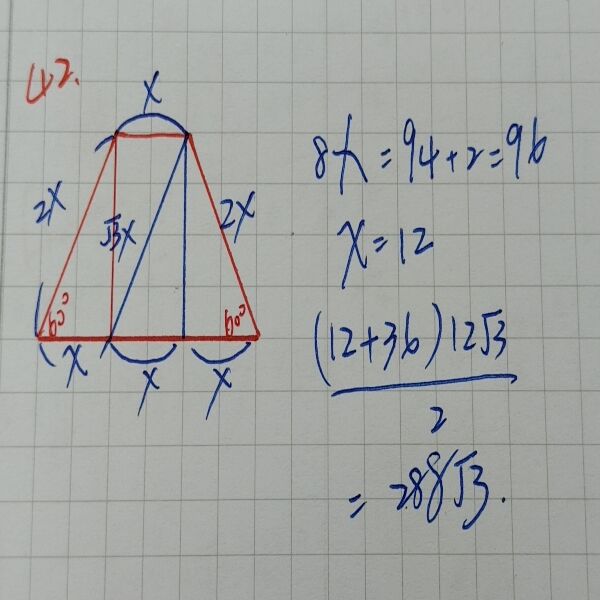 42.
x
2x
√3x
2x
60°
60°
x
x
x
8x=94+2=96
x=12
(12+36)12√3
2
=288√3.